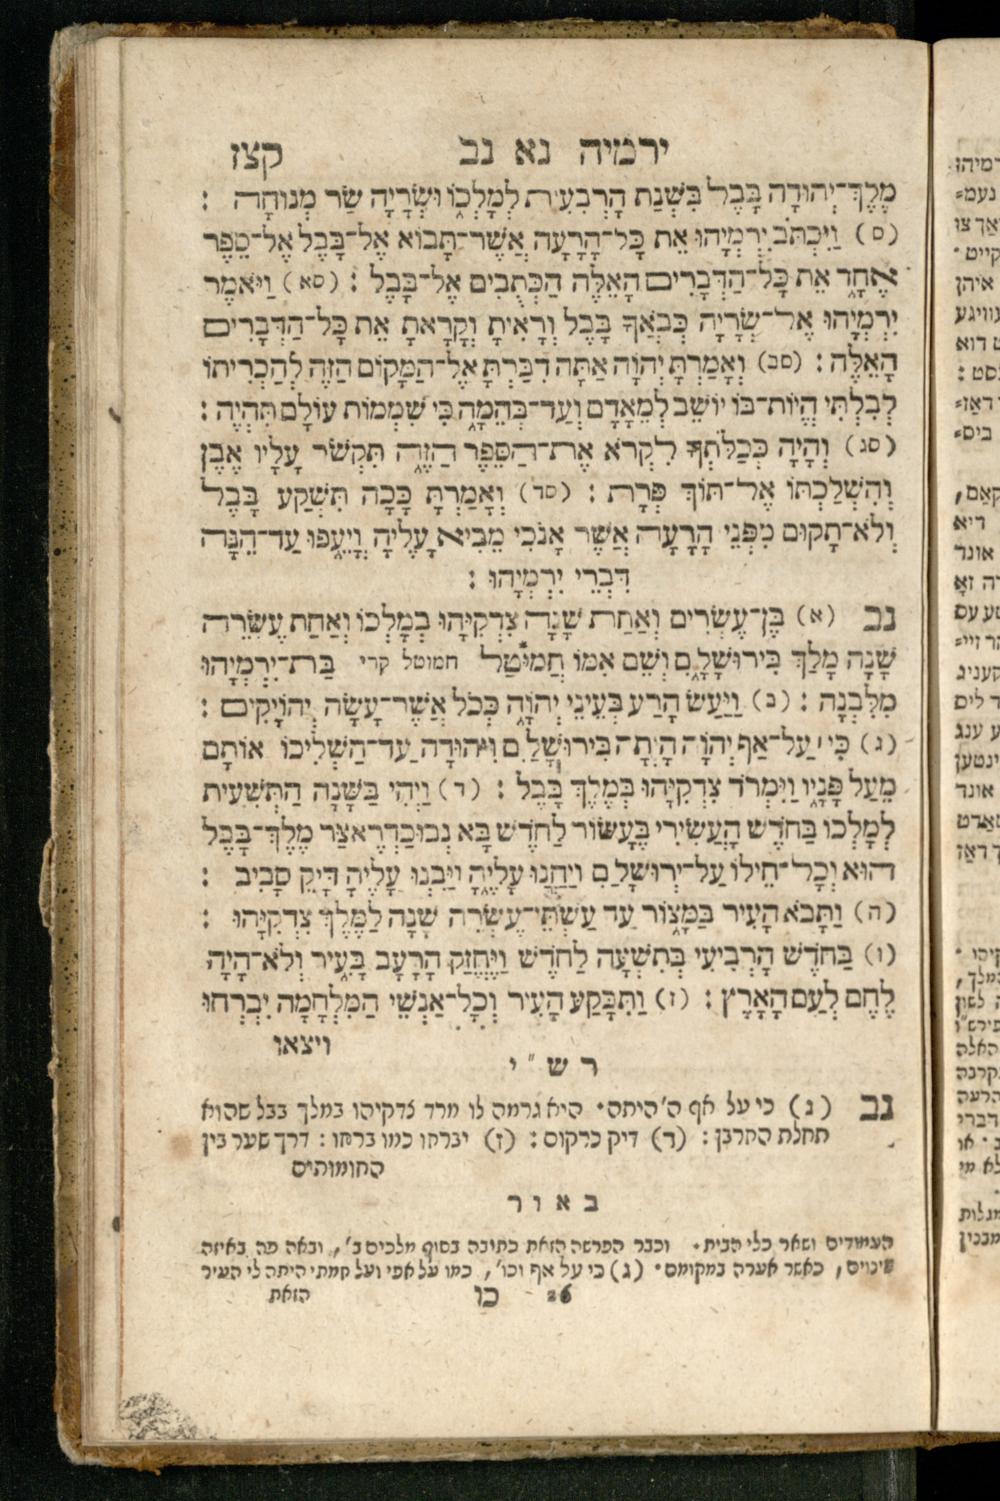 ירמיה נא נב קצז
מֶלֶךְ־יְהוּדָה בָּבֶל בִּשְׁנַת הָרְבִעִית לְמָלְכוֹ וּשְׂרָיָה שַׂר מְנוּחָה :
(ס) וַיִּכְתֹּב יִרְמְיָהוּ אֵת כָּל־הָרָעָה אֲשֶׁר־תָּבוֹא אֶל־בָּבֶל אֶל־סֵפֶר
אֶחָד אֵת כָּל־הַדְּבָרִים הָאֵלֶּה הַכְּתֻבִים אֶל־בָּבֶל : (סא) וַיֹּאמֶר
יִרְמְיָהוּ אֶל־שְׂרָיָה כְּבֹאֲךָ בָבֶל וְרָאִיתָ וְקָרָאתָ אֵת כָּל־הַדְּבָרִים
הָאֵלֶּה : (סב) וְאָמַרְתָּ יְהוָֹה אַתָּה דִבַּרְתָּ אֶל־הַמָּקוֹם הַזֶּה לְהַכְרִיתוֹ
לְבִלְתִּי הֱיוֹת־בּוֹ יוֹשֵׁב לְמֵאָדָם וְעַד־בְּהֵמָה כִּי שִׁמְמוֹת עוֹלָם תִּהְיֶה :
(סג) וְהָיָה כְּכַלֹּתְךָ לִקְרֹא אֶת־הַסֵּפֶר הַזֶּה תִּקְשֹׁר עָלָיו אֶבֶן
וְהִשְׁלַכְתּוֹ אֶל־תּוֹךְ פְּרָת : (סד) וְאָמַרְתָּ כָּכָה תִּשְׁקַע בָּבֶל
וְלֹא־תָקוּם מִפְּנֵי הָרָעָה אֲשֶׁר אָנֹכִי מֵבִיא עָלֶיהָ וְיָעֵפוּ עַד־הֵנָּה
דִּבְרֵי יִרְמְיָהוּ :
נב (א) בֶּן־עֶשְׂרִים וְאַחַת שָׁנָה צִדְקִיָּהוּ בְמָלְכוֹ וְאַחַת עֶשְׂרֵה
שָׁנָה מָלַךְ בִּירוּשָׁלָ‍ִם וְשֵׁם אִמּוֹ חֲמִיטַל חמוטל קרי בַּת־יִרְמְיָהוּ
מִלִּבְנָה : (ב) וַיַּעַשׂ הָרַע בְּעֵינֵי יְהוָֹה כְּכֹל אֲשֶׁר־עָשָׂה יְהוֹיָקִים :
(ג) כִּי עַל־אַף יְהוָֹה הָיְתָה בִּירוּשָׁלַ‍ִם וִיהוּדָה עַד־הִשְׁלִיכוֹ אוֹתָם
מֵעַל פָּנָיו וַיִּמְרֹד צִדְקִיָּהוּ בְּמֶלֶךְ בָּבֶל : (ד) וַיְהִי בַשָּׁנָה הַתְּשִׁעִית
לְמָלְכוֹ בַּחֹדֶשׁ הָעֲשִׂירִי בֶּעָשׂוֹר לַחֹדֶשׁ בָּא נְבוּכַדְרֶאצַּר מֶלֶךְ־בָּבֶל
הוּא וְכָל־חֵילוֹ עַל־יְרוּשָׁלִַם וַיַּחֲנוּ עָלֶיהָ וַיִּבְנוּ עָלֶיהָ דָּיֵק סָבִיב :
(ה) וַתָּבֹא הָעִיר בַּמָּצוֹר עַד עַשְׁתֵּי־עֶשְׂרֵה שָׁנָה לַמֶּלֶךְ צִדְקִיָּהוּ :
(ו) בַּחֹדֶשׁ הָרְבִיעִי בְּתִשְׁעָה לַחֹדֶשׁ וַיֶּחֱזַק הָרָעָב בָּעִיר וְלֹא־הָיָה
לֶחֶם לְעַם הָאָרֶץ : (ז) וַתִּבָּקַע הָעִיר וְכָל־אַנְשֵׁי הַמִּלְחָמָה יִבְרְחוּ
ויצאו
ר ש״ י
נב (ג) כי על אף ה' היתה· היא גרמה לו מרד צדקיהו במלך בבל שהוא
תחלת החרבן : (ד) דיק כרקום : (ז) יברחו כמו ברחו : דרך שער בין
החומותים
ב א ו ר
העמודים ושאר כלי הבית · וכבר הפרשה הזאת כתיבה בסוף מלכים ב', ובאה פה באיזה
שינוים, כאשר אערה במקומם · (ג) כי על אף וכו', כמו על אפי ועל חמתי היתה לי העיר
26 כו הזאת